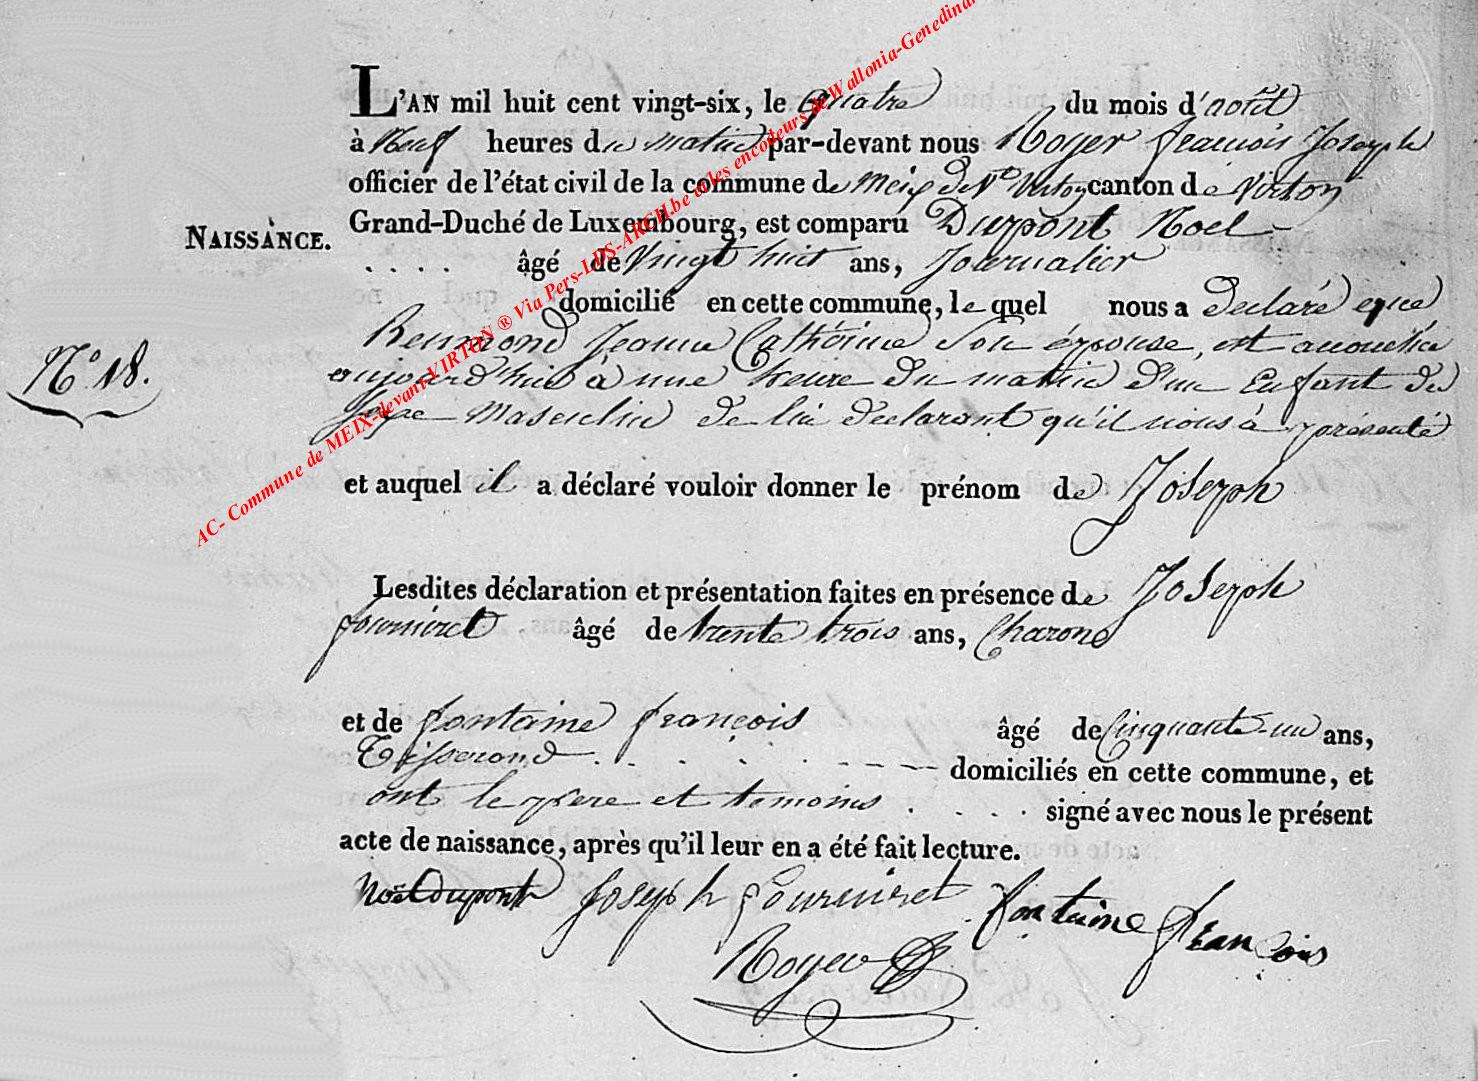 L'AN mil huit cent vingt-six, le quatre du mois d'août
à Neuf heures du matin par-devant nous Royer francois Joseph
officier de l'état civil de la commune de Meix devt Virton canton de Virton
Grand-Duché de Luxembourg, est comparu Dupont Noel
NAISSANCE.
. . . . âgé de vingt huit ans, Journalier
domicilié en cette commune, le quel nous a declaré que
Reumond Jeanne Cathérine son épouse, est accouchée
N° 18.
aujourd'hui à une heure du matin d'un Enfant du
sexe Masculin de lui declarant qu'il nous à présenté
et auquel il a déclaré vouloir donner le prénom de Joseph
Lesdites déclaration et présentation faites en présence de Joseph
fourniret âgé de trente trois ans, Charon
et de fontaine françois âgé de Cinquante-un ans,
Tisserand . . . . . domiciliés en cette commune, et
ont le père et temoins . . . . signé avec nous le présent
acte de naissance, après qu'il leur en a été fait lecture.
Noël dupont Joseph fourniret fontaine francois
Royer
AC- Commune de MEIX-devant-VIRTON ® Via Pers-LDS-ARCH.be et les encodeurs de Wallonia-Genedinan